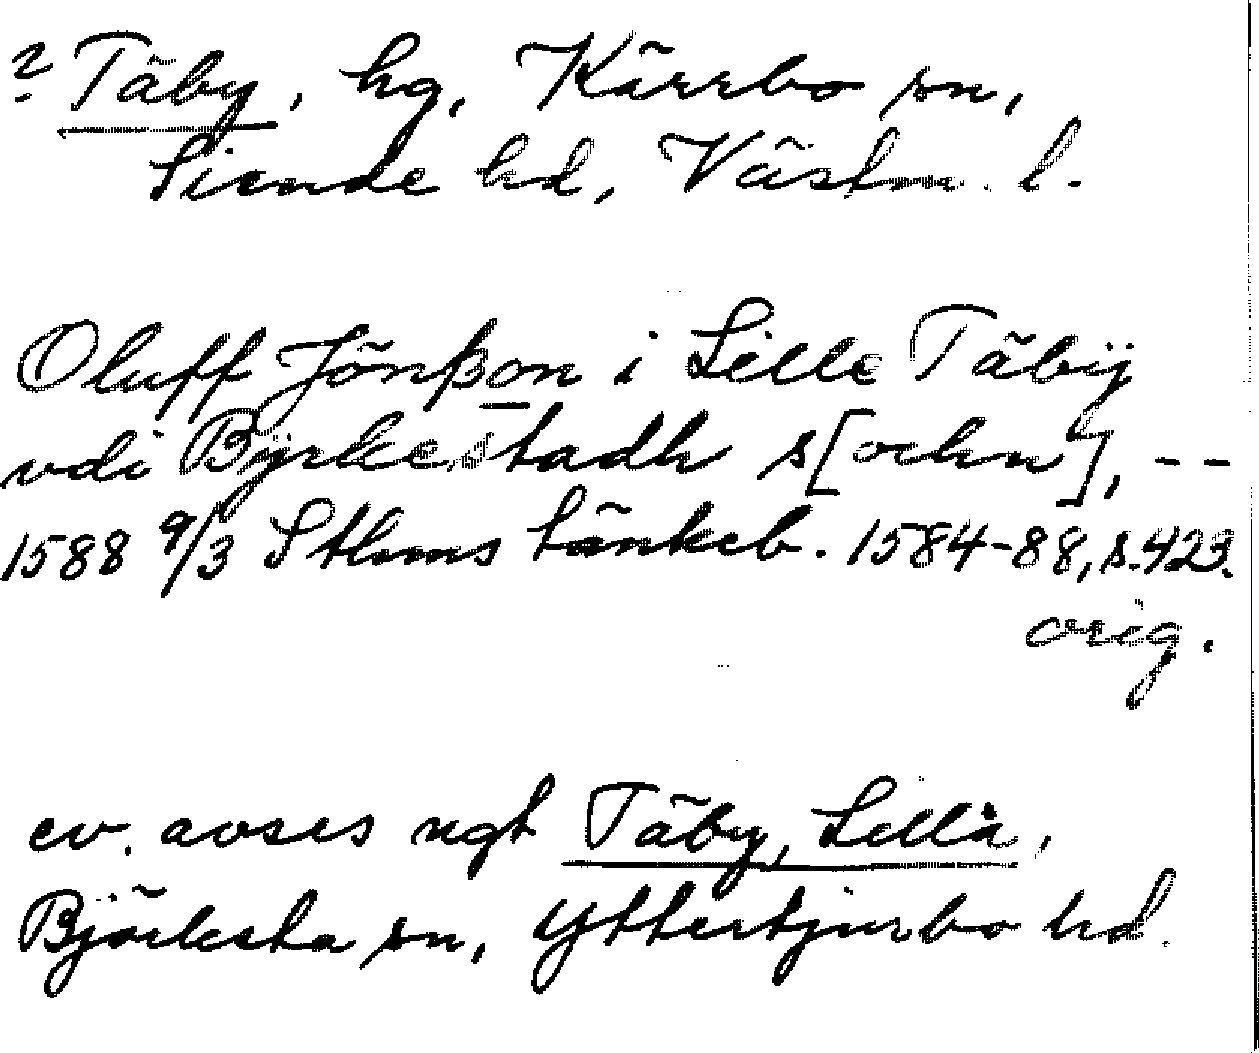 ? Täby, hg, Kärrbo sn,
Siende hd, Västm. l.
Oluff Jönßon i Lille Täbÿ
vdi Bÿrkestadh s[ochn], --
1588 9/3 Sthms tänkeb. 1584-88, s. 423.
orig.
ev. avses ngt Täby, Lilla,
Björksta sn, Yttertjurbo hd.